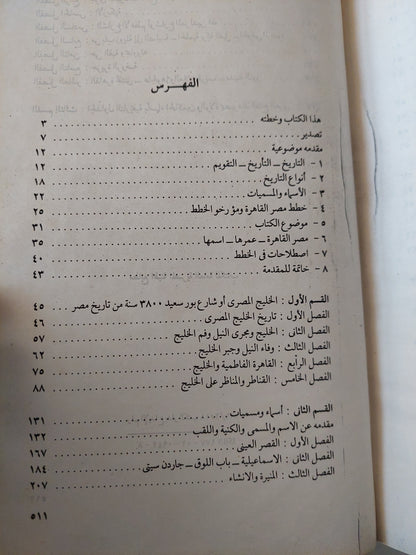 الفهـــرس
هذا الكتاب وخطته ٣
تصدير ٧
مقدمه موضوعية ١٢
١ - التاريخ ــ التأريخ ــ التقويم ١٢
٢ - أنواع التاريخ ١٨
٣ - الأسماء والمسميات ٢٢
٤ - خطط مصر القاهرة ومؤرخو الخطط ٢٥
٥ - موضوع الكتاب ٣١
٦ - مصر القاهرة ــ عمرها ــ اسمها ٣٥
٧ - اصطلاحات فى الخطط ٤٠
٨ - خاتمة للمقدمة ٤٣
القسم الأول : الخليج المصرى أو شارع بور سعيد ٣٨٠٠ سنة من تاريخ مصر ٤٥
الفصل الأول : تاريخ الخليج المصرى ٤٦
الفصل الثانى : الخليج ومجرى النيل وفم الخليج ٥٧
الفصل الثالث : وفاء النيل وجبر الخليج ٦٢
الفصل الرابع : القاهرة الفاطمية والخليج ٧٥
الفصل الخامس : القناطر والمناظر على الخليج ٨٨
القسم الثانى : أسماء ومسميات ١٣١
مقدمه عن الاسم والمسمى والكنية واللقب ١٣٢
الفصل الأول : القصر العينى ١٦٧
الفصل الثانى : الاسماعيلية ــ باب اللوق ــ جاردن سيتى ١٨٤
الفصل الثالث : المنيرة والانشاء ٢٠٧
٥١١